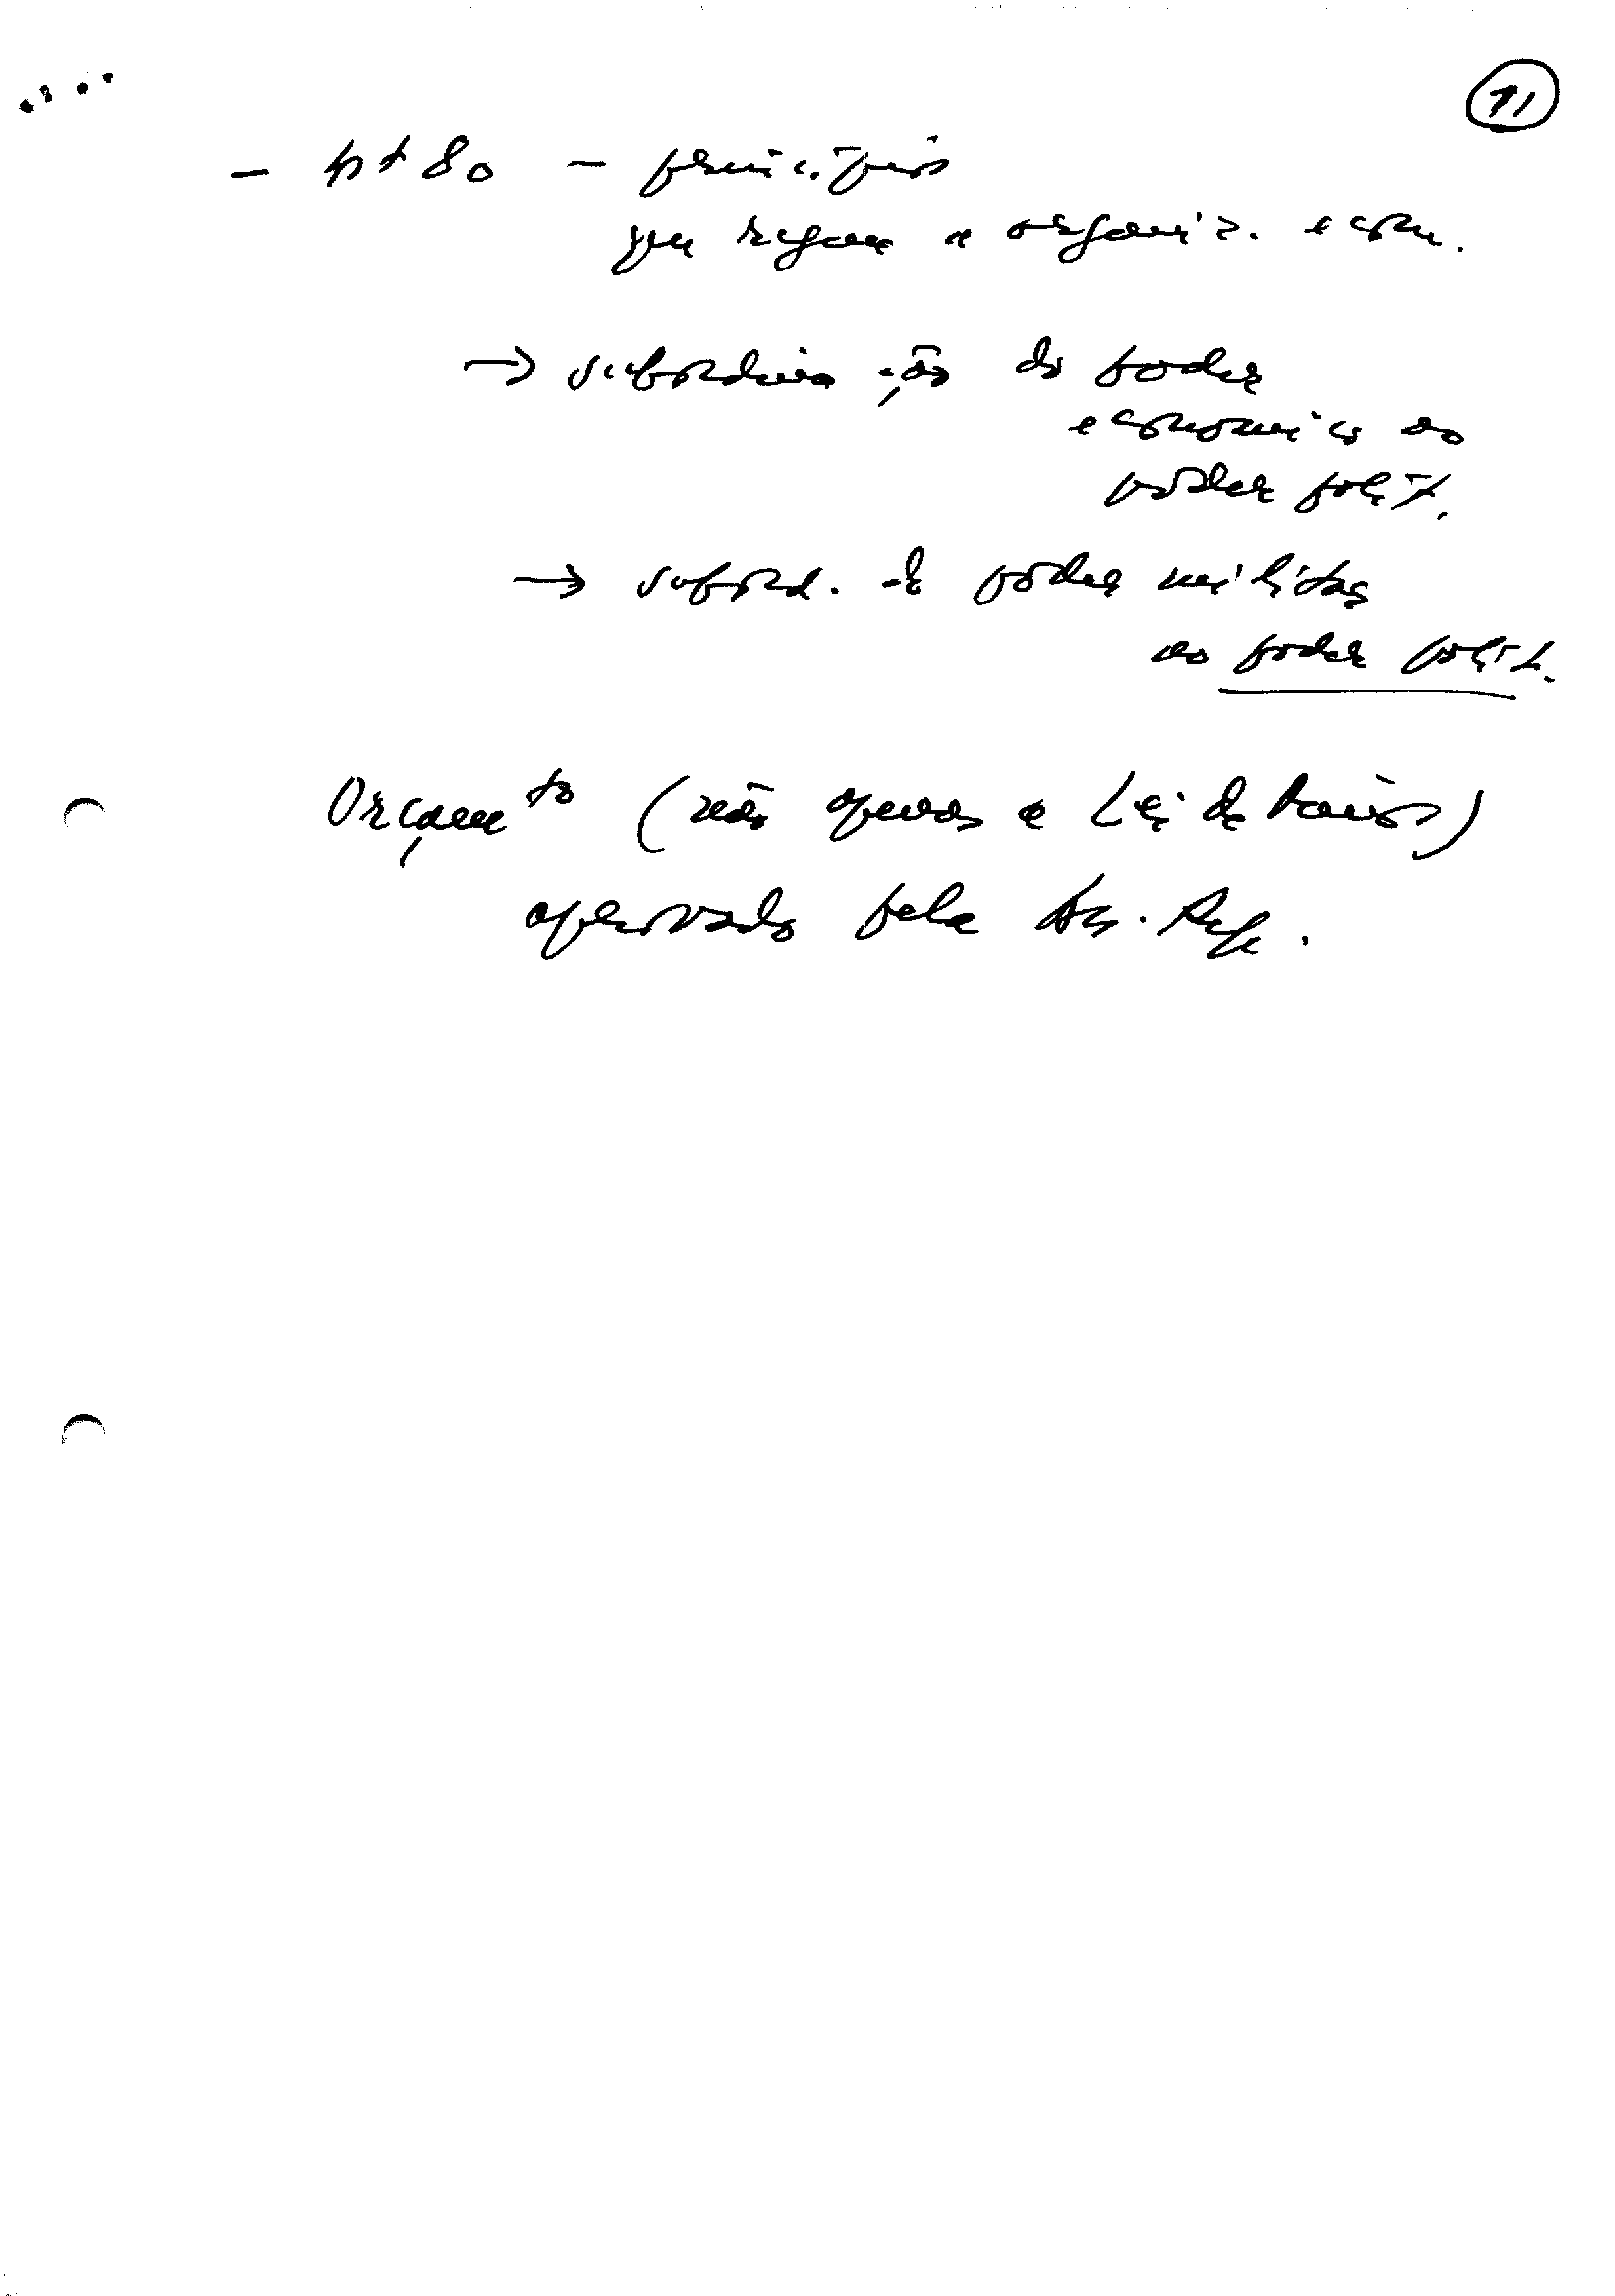 11
- Art 80 - princípios
que regem a organiz. econ.
→ subordinação do poder
economico ao
poder polít.
→ subord. do poder militar
ao poder polít.
Orçamto (não apenas a Lei de Bases)
aprovado pela Ass. Rep.